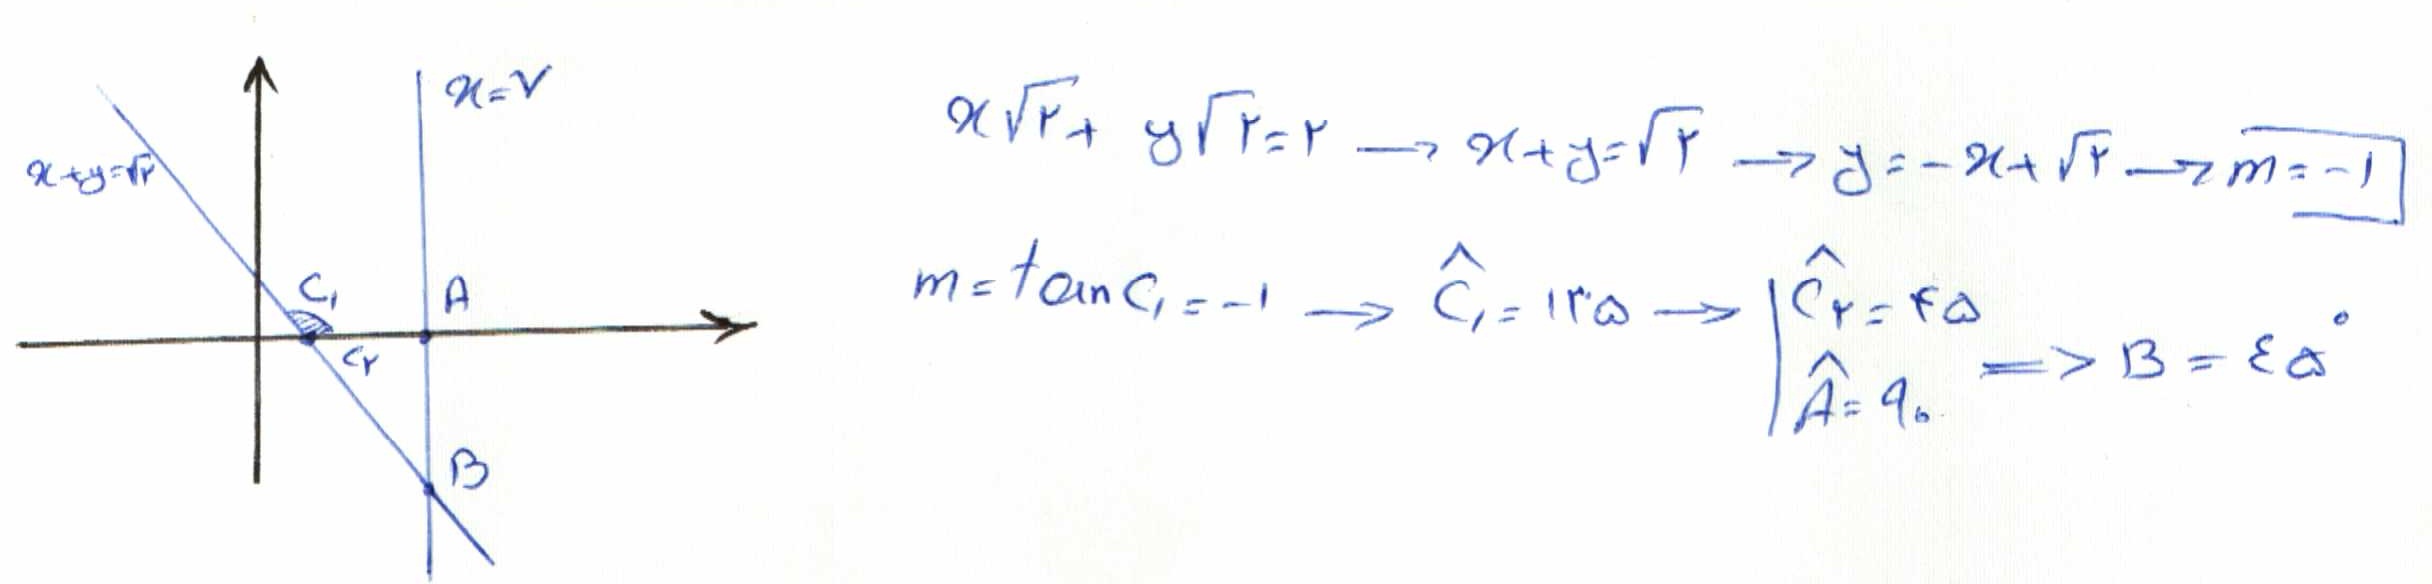 x=۷
x+y=√۲
C₁
A
C۲
B
x√۲ + y√۲=۲ → x+y=√۲ → y=-x+√۲ → m=-۱
m=tan C₁=-۱ → Ĉ₁=۱۳۵ → | Ĉ۲=۴۵
Â=۹۰ => B=٤۵°